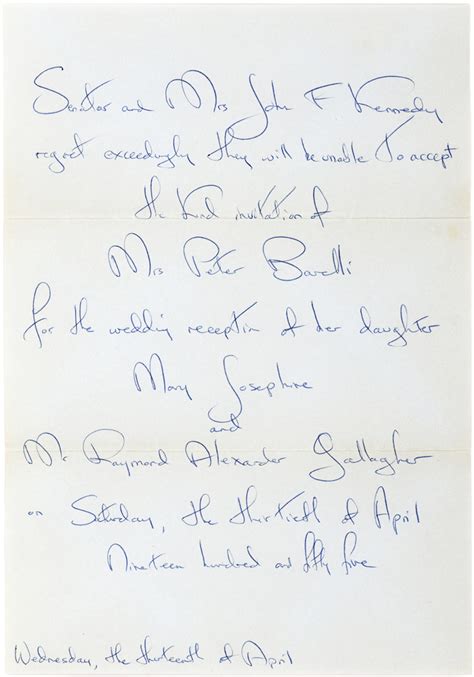 Senator and Mrs John F Kennedy
regret exceedingly they will be unable to accept
the kind invitation of
Mrs Peter Barelli
for the wedding reception of her daughter
Mary Josephine
and
Mr Raymond Alexander Gallagher
on Saturday, the thirtieth of April
Nineteen hundred and fifty five
Wednesday, the thirteenth of April